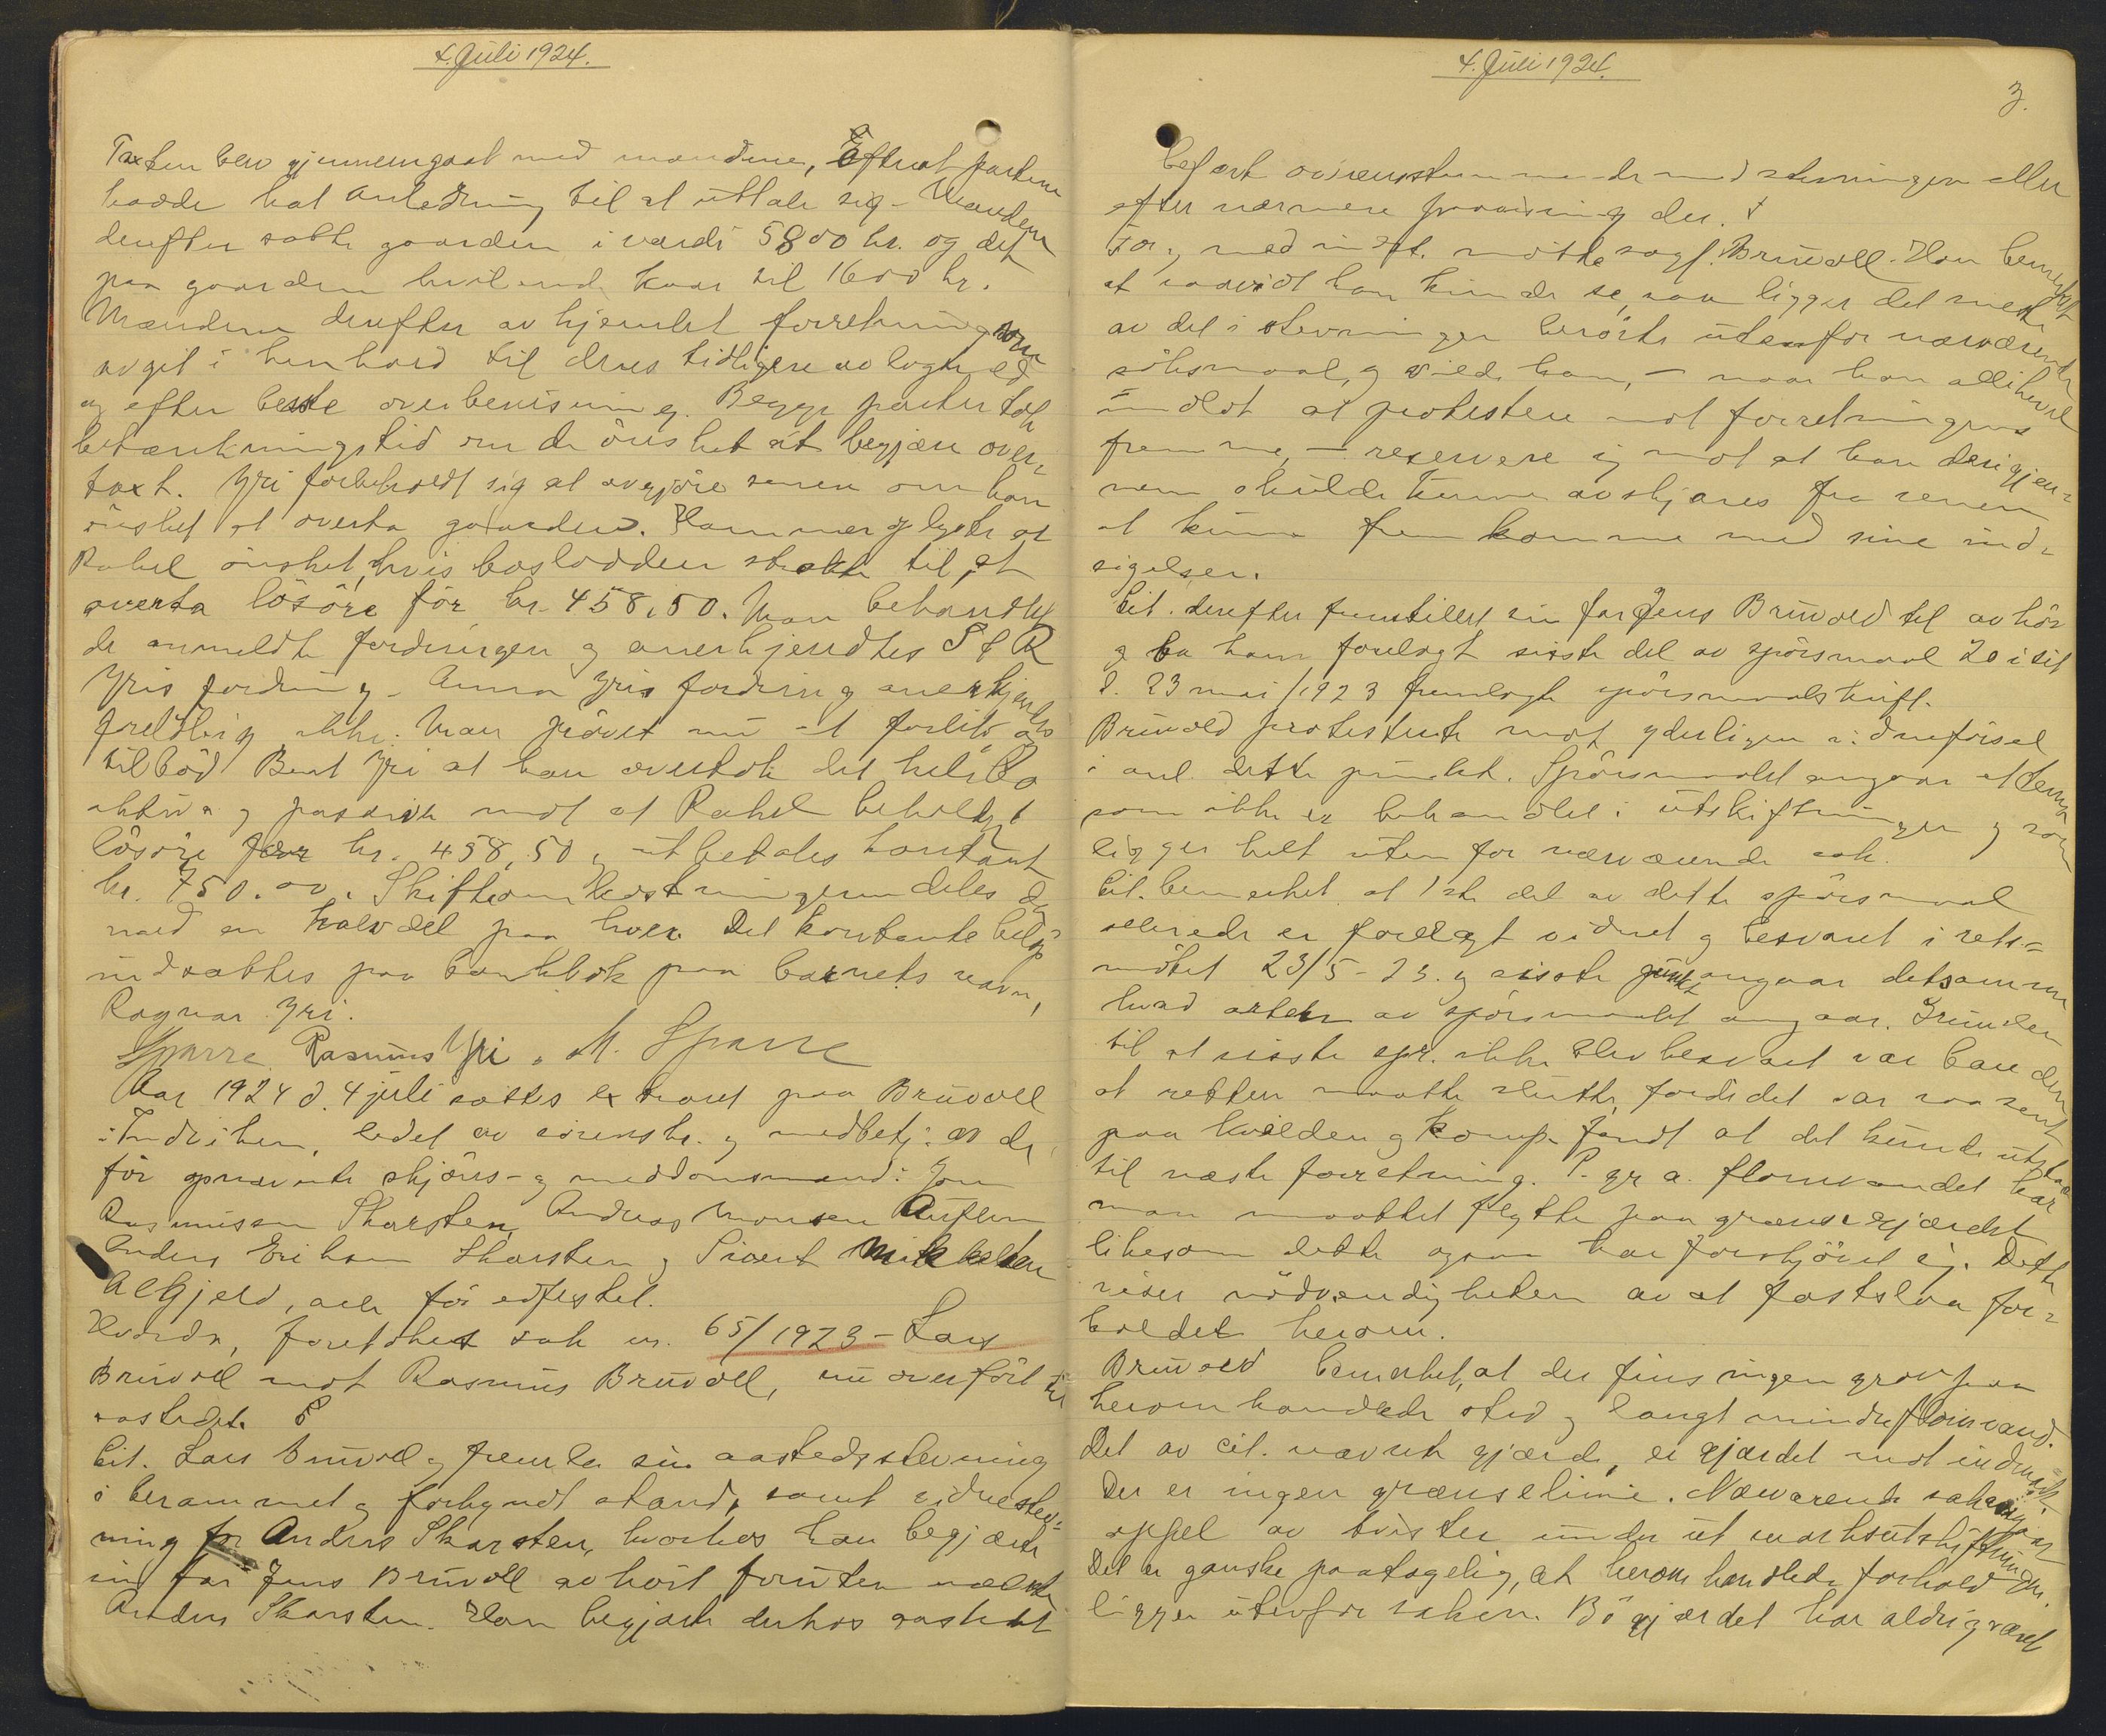 4. Juli 1924.
Taxten blev gjennemgaat med mændene, efterat partene
hadde hat anledning til at uttale sig. Mændene
derefter satte gaarden i værdi 5800 kr. og det
paa gaarden hvilende kaar til 1600 kr.
Mændene derefter av hjemlet forretningen som
avgit i henhold til deres tidligere avlagte ed
og efter beste overbevisning. Begge parter tok
betænkningstid om de ønsket at begjære over-
taxt. Yri forbeholdt sig at avgjøre senere om han
ønsket at overta gaarden. Hammer oplyste at
Rakel ønsket, hvis boslodden strakte til, at
overta løsøre for kr. 458,50. Man behandlet
de anmeldte fordringer og anerkjendtes P & R
Yris fordring. Anna Yris fordring anerkjendtes
foreløbig ikke. Man prøvet nu et forlik og
tilbød Bent Yri at han overtok det hele bo
aktiva og passiva mot at Rakel beholdt
løsøre for kr. 458,50 og utbetales kontant
kr. 750.00. Skifteomkostningerne deles da
med en halvdel paa hver. Det kontante beløp
indsættes paa bankbok paa barnets navn,
Ragnar Yri.
Sparre. Rasmus Yri. M. Sparre
Aar 1924 d. 4 juli sattes extraret paa Bruvoll
i Indviken, ledet av sorenskr. og medbetj. av de
før opnævnte skjøns- og meddomsmænd: Jon
Rasmussen Skarsten, Andreas Monsen Auflem
Anders Eriksen Skarsten og Sivert Mikkelsen
Algjeld, alle før edfestet.
Hvorda, foretokes sak nr. 65/1923 - Lars
Bruvoll mot Rasmus Bruvoll, nu overført til
aastedet.
Cit. Lars Bruvoll og fremla sin aastedsstevning
i berammet og forkyndt stand, samt vidnestev-
ning for Anders Skarsten, hvorhos han begjærte
sin far Jens Bruvoll avhørt foruten nævnte
Anders Skarsten. Han begjærte derhos aastedet
4. Juli 1924.
3.
befart overensstemmende med stevningen eller
efter nærmere paavisning der.
For og med indst. møtte sagf. Bruvoll. Han bemerket
at saavidt han kunde se, saa ligger det meste
av det i stevningen berørte utenfor nærværende
søksmaal, og vilde han, - naar han allikevel
undlot at protestere mot forretningens
fremme, - reservere sig mot at han derigjen-
nem skulde kunne avskjæres fra senere
at kunne fremkomme med sine ind-
sigelser.
Cit. derefter fremstillet sin far Jens Bruvold til avhør
og ba ham forelagt sisste del av spørsmaal 20 i sit
d. 23 mai/1923 fremlagte spørsmaalskrift.
Bruvold protesterte mot yderligere vidneførsel
i anl. dette punkt. Spørsmaalet angaar et tema
som ikke er behandlet i utskiftningen og som
ligger helt utenfor nærværende sak.
Cit. bemerket at 1ste del av dette spørsmaal
allerede er forelagt vidnet og besvaret i rets-
møtet 23/5-23. og sisste punkt angaar detsamme
hvad arten av spørsmaalet angaar. Grunden
til at sisste spr. ikke blev besvart var bare den
at retten maatte slutte, fordi det var saa sent
paa kvælden og komp. fandt at det kunde utstaa
til næste forretning. P. gr. a. flomvandet har
man maattet flytte paa grænsegjærdet
likesom dette ogsaa har forskjøvet sig. Dette
viser nødvendigheten av at fastslaa for-
holdet herom.
Bruvold bemerket, at der fins ingen grav paa
heromhandlede sted og langt mindre flomvand.
Det av cit. nævnte gjærde, er gjærdet mot indmark.
Der er ingen grænselinie. Nærværende sak angaar
oppel av tvister under utmarksutskiftningen.
Det er ganske paatagelig, at heromhandlede forhold
ligger utenfor saken. Bøgjærdet har aldrig været